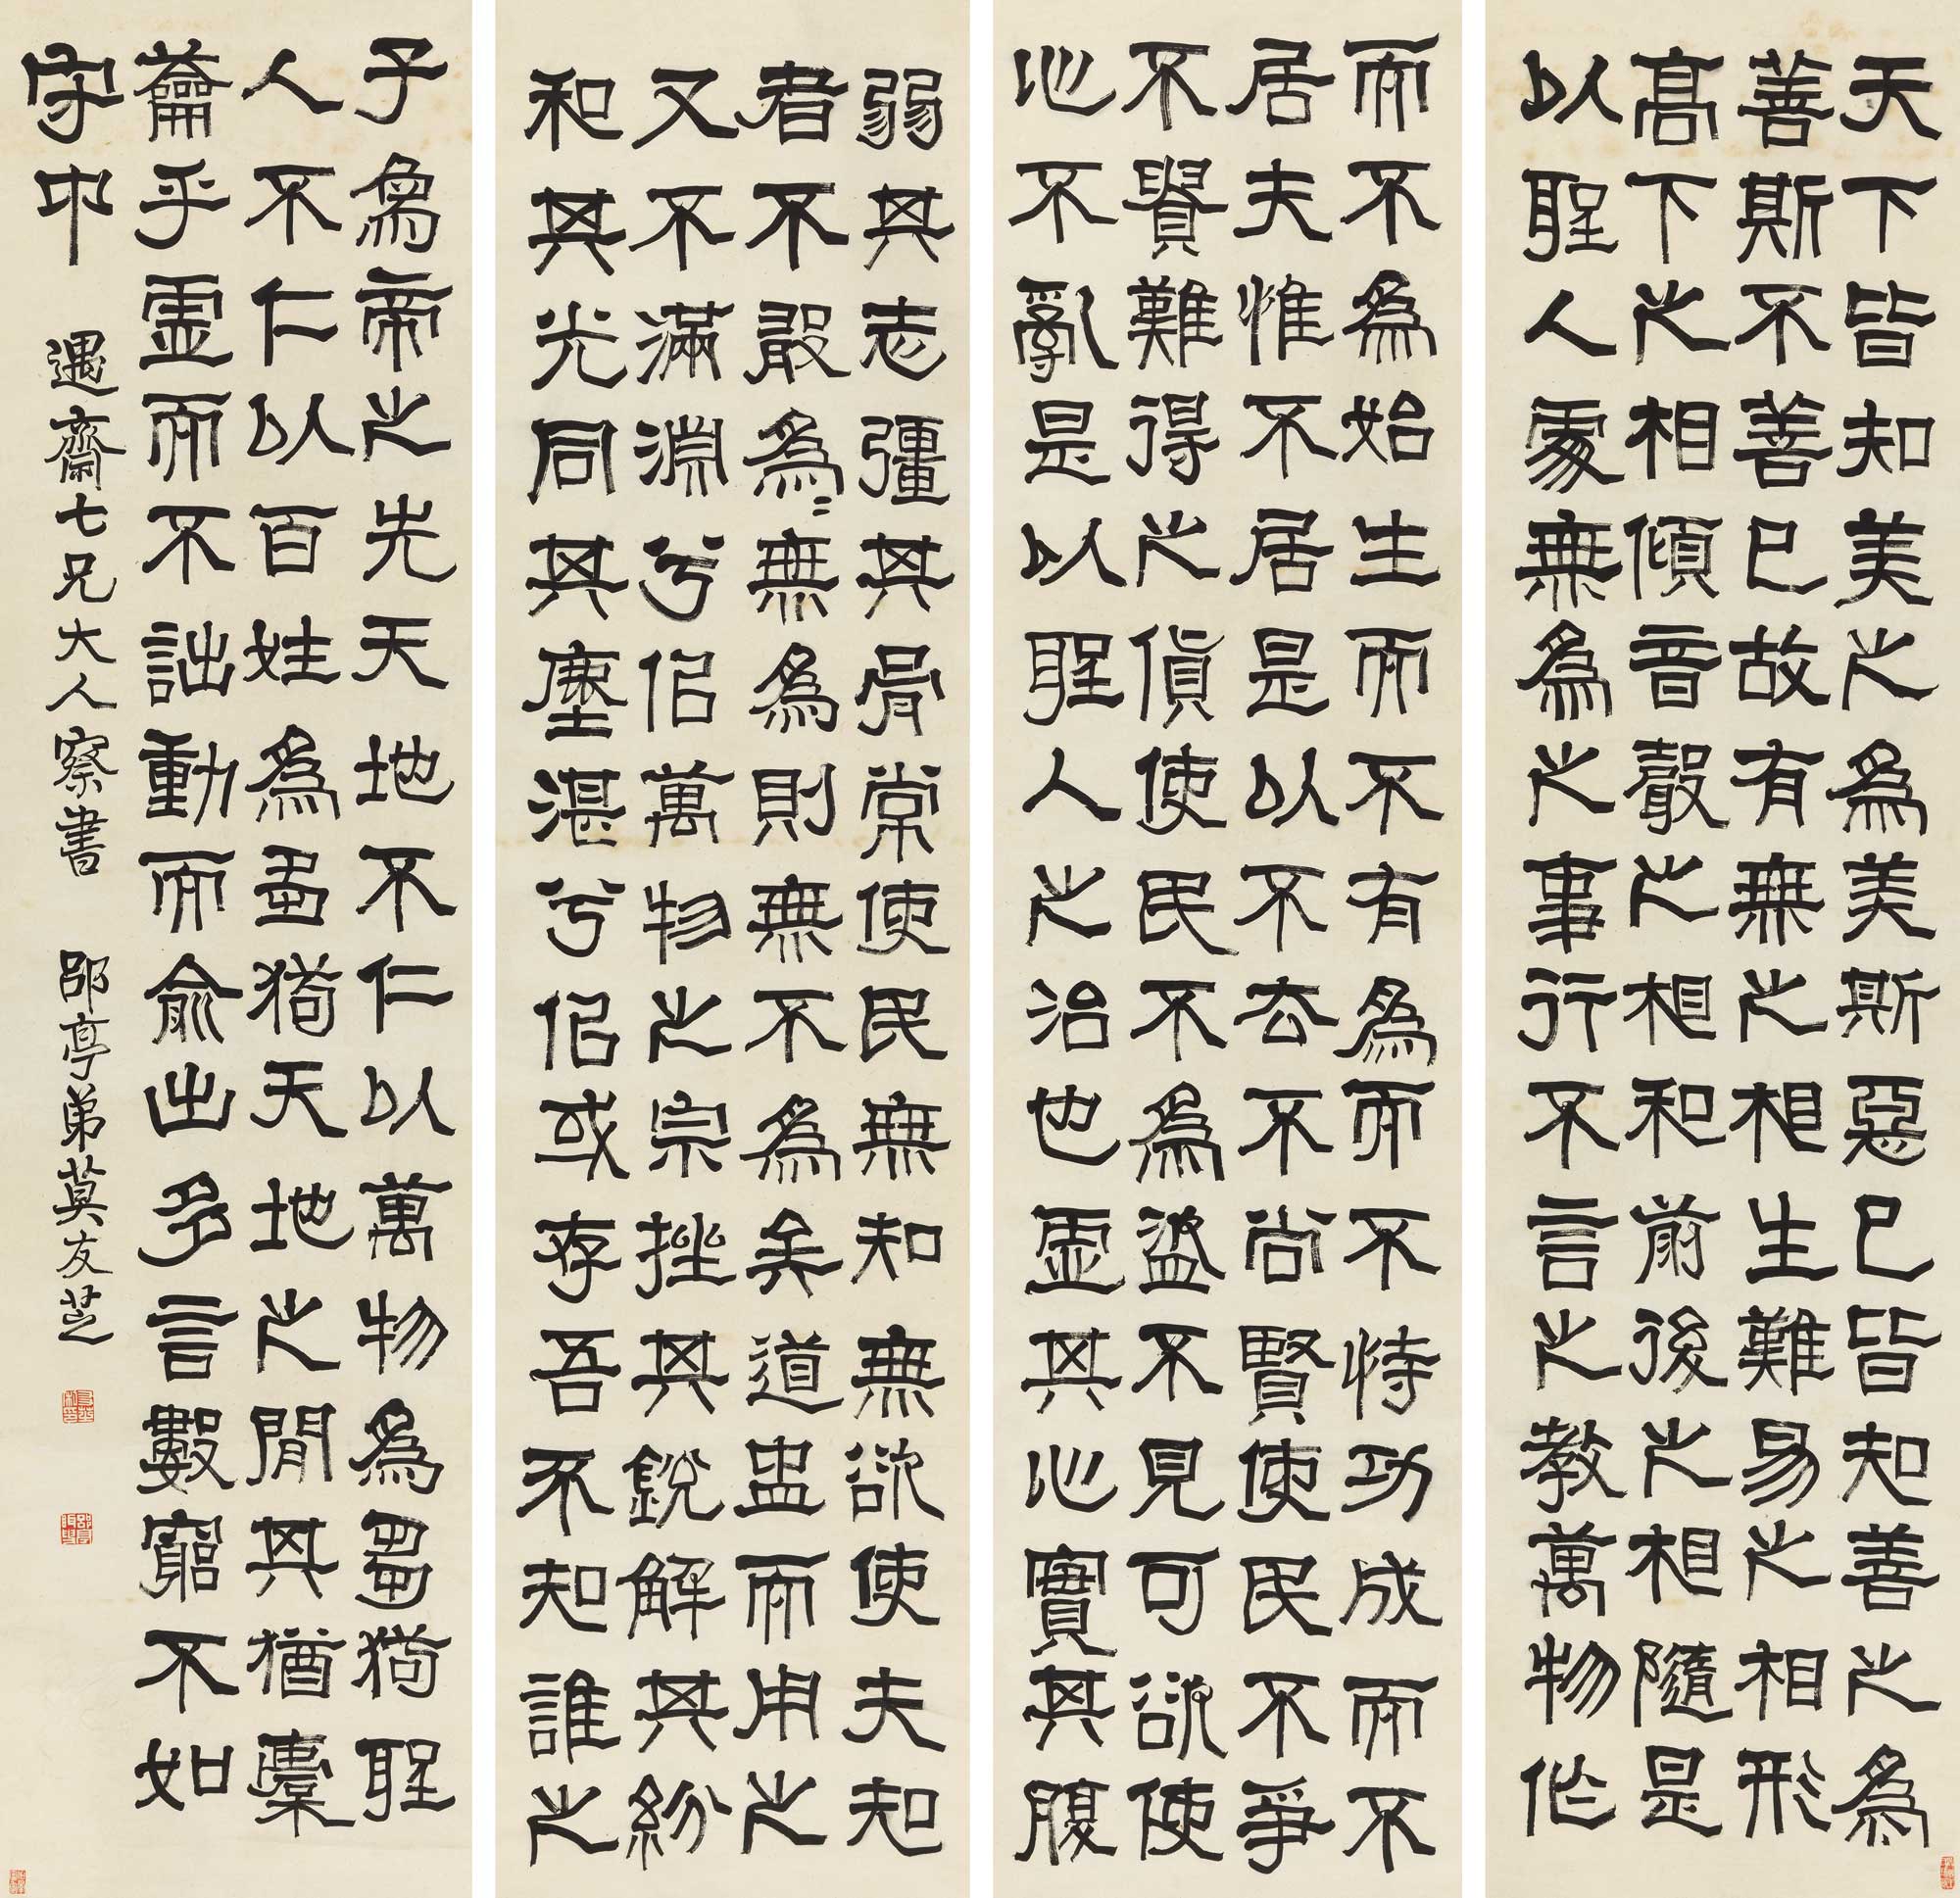 天下皆知美之為美斯惡已皆知善之為
善斯不善已故有無之相生難易之相形
高下之相傾音聲之相和前後之相隨是
以聖人處無為之事行不言之教萬物作
而不為始生而不有為而不恃功成而不
居夫惟不居是以不去不尚賢使民不爭
不貴難得之貨使民不為盜不見可欲使
心不亂是以聖人之治也虛其心實其腹
弱其志彊其骨常使民無知無欲使夫知
者不敢為〻無為則無不為矣道盅而用之
又不滿淵兮佀萬物之宗挫其銳解其紛
和其光同其塵湛兮佀或存吾不知誰之
子為帝之先天地不仁以萬物為芻狗聖
人不仁以百姓為芻狗天地之閒其猶橐
籥乎虛而不詘動而俞出多言數窮不如
守中
遇齋七兄大人察書
郘亭弟莫友芝